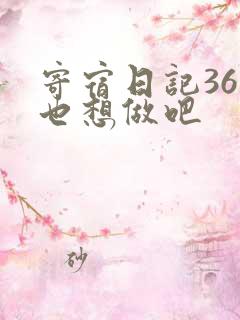 寄宿日記36
也想做吧
砂